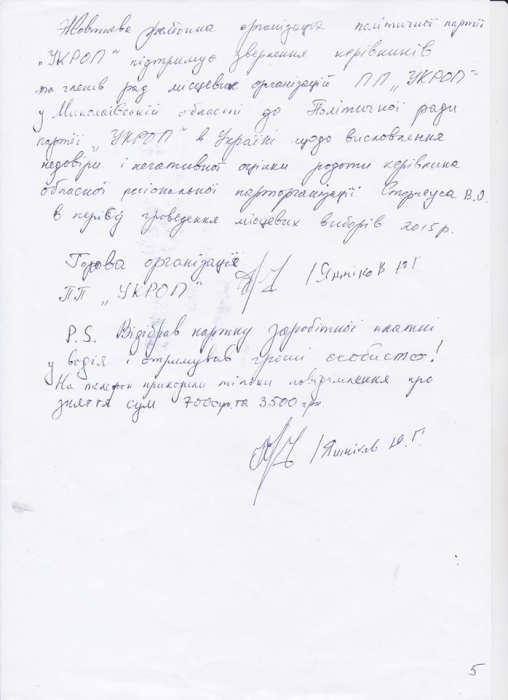 Жовтнева районна організація політичної партії
„УКРОП" підтримує звернення керівників
та членів рад місцевих організацій ПП „УКРОП"
у Миколаївській області до Політичної ради
партії „УКРОП" в Україні щодо висловлення
недовіри і негативної оцінки роботи керівника
обласної регіональної парторганізації В.О.
в період проведення місцевих виборів 2015 р.
Голова організації
ПП „УКРОП"
P.S. Відібрав картку заробітної платні
у водія і отримував гроші особисто!
На телефон приходили тільки повідомлення про
зняття сум 7000грн. та 3500 грн.
5